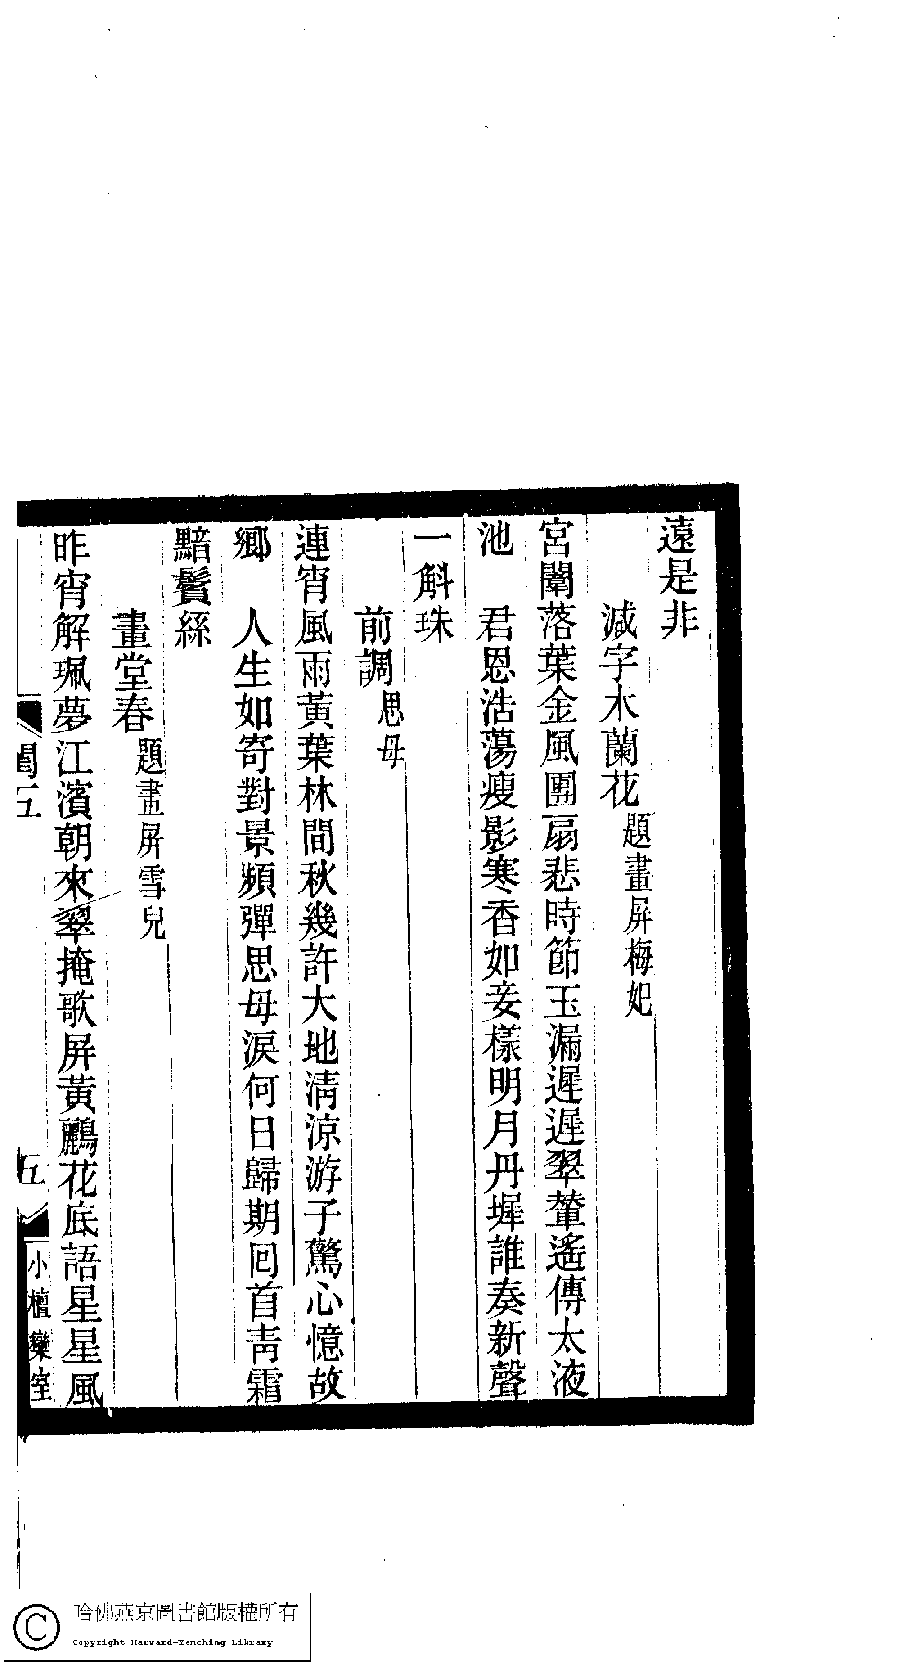 遠是非
減字木蘭花題畫屏梅妃
宮闈落葉金風團扇悲時節玉漏遲遲翠輦遙傳太液
池　君恩浩蕩瘦影寒香如妾樣明月丹墀誰奏新聲
一斛珠
前調思母
連宵風雨黃葉林間秋幾許大地淸涼游子驚心憶故
鄉　人生如寄對景頻彈思母淚何日歸期回首靑霜
黯鬢絲
畫堂春題畫屏雪兒
昨宵解珮夢江濱朝來翠掩歌屏黃鸝花底語星星風
閨五
五
小檀欒室
哈佛燕京圖書館版權所有
Copyright Harvard-Yenching Library